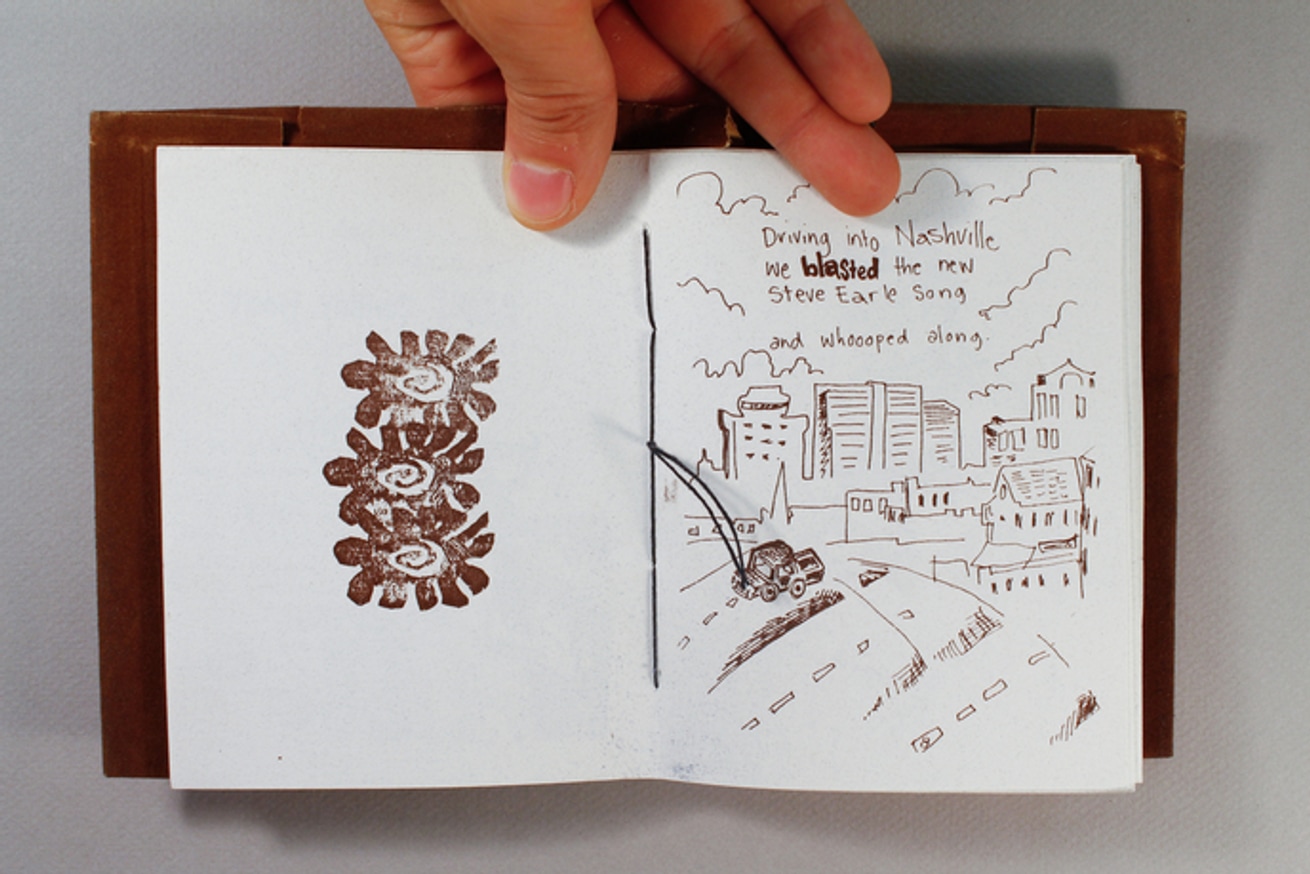 Driving into Nashville
we blasted the new
Steve Earle Song
and whoooped along.